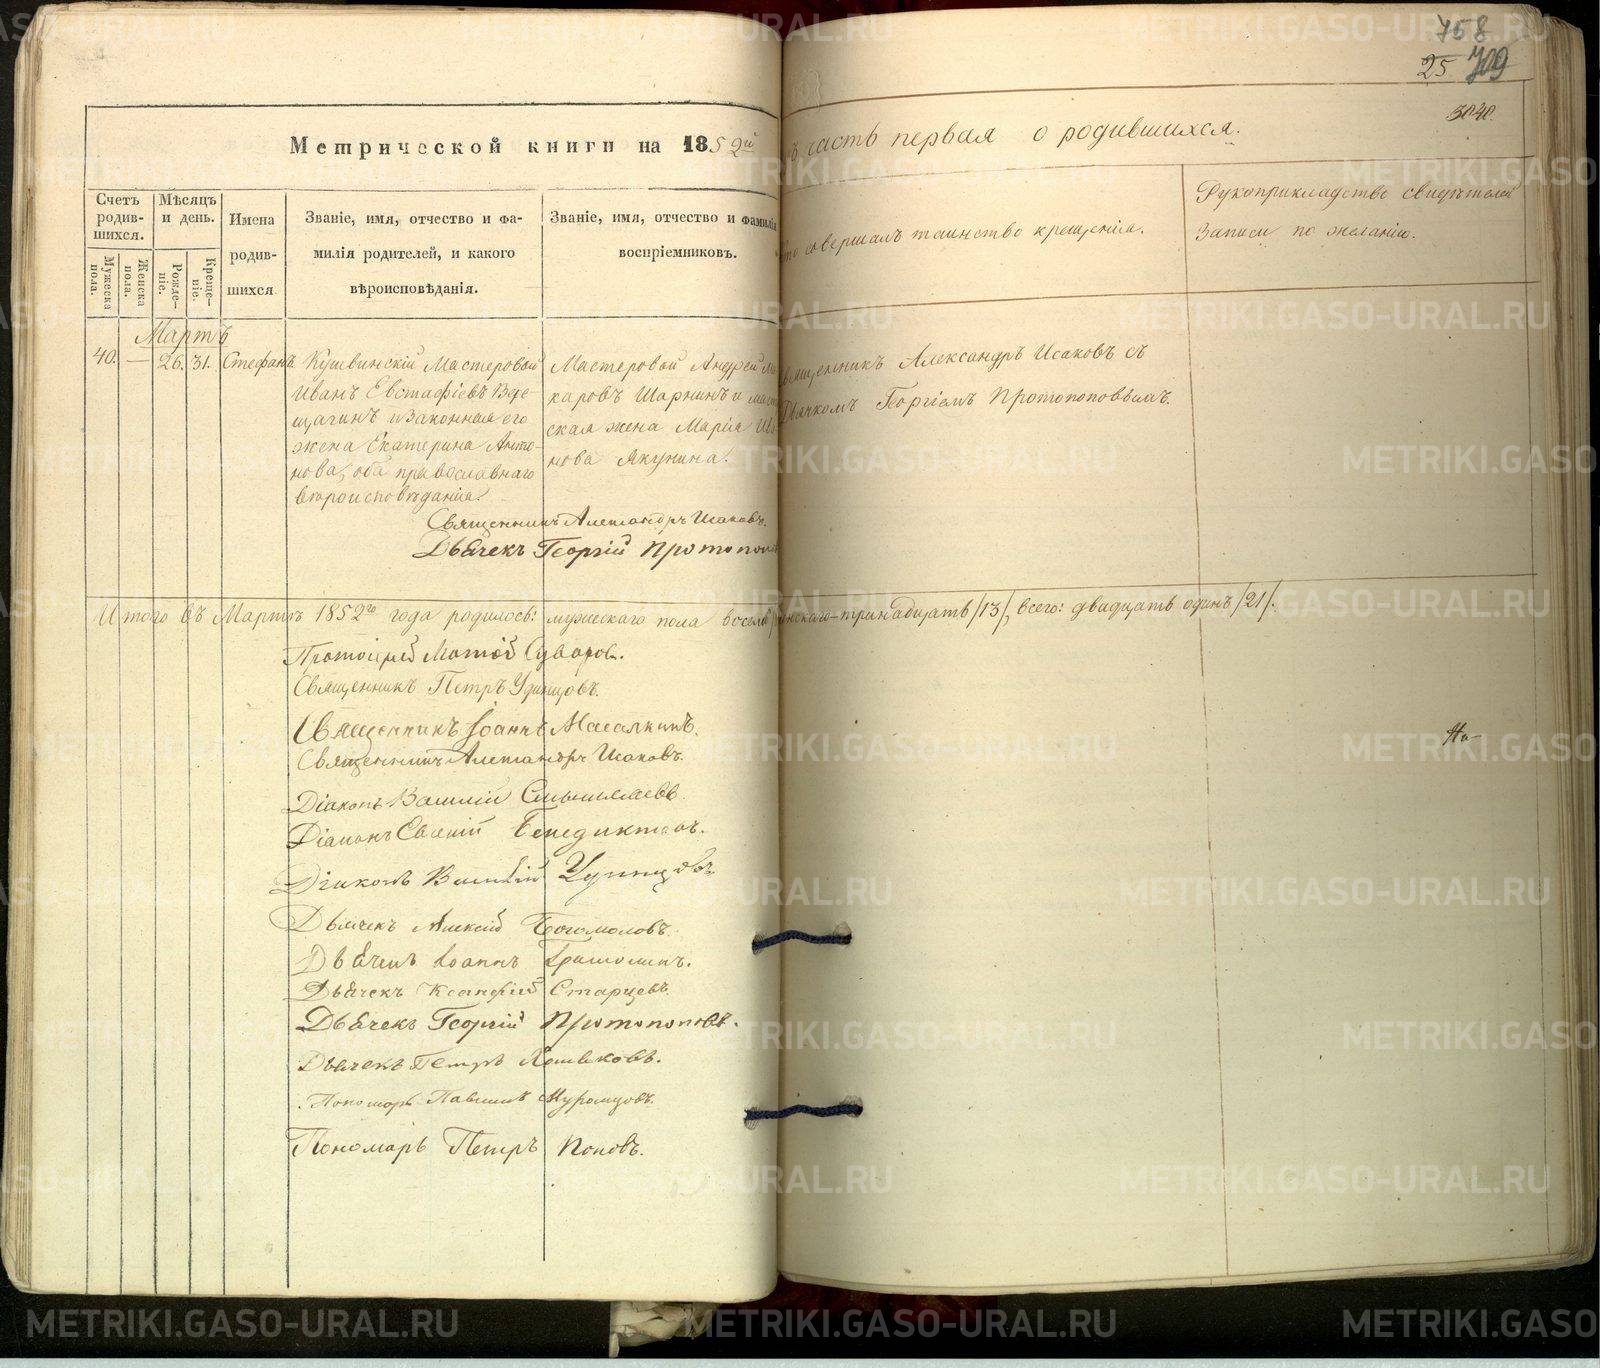 758
25 709
3040.
Метрической книги на 1852й
часть первая о родившихся.
Счетъ родив-шихся.
Мужеска пола.
Женска пола.
Мѣсяцъ и день.
Рожде-ніе.
Креще-ніе.
Имена
родив-
шихся
Званіе, имя, отчество и фа-
милія родителей, и какого
вѣроисповѣданія.
Званіе, имя, отчество и фамилія
воспріемниковъ.
Кто совершалъ таинство крещенія.
Рукоприкладство свидѣтелей
записи по желанію.
Мартъ
40. — 26. 31. Стефанъ
Кушвинскій Мастеровой
Иванъ Евстафіевъ Вере-
щагинъ и законная его
жена Екатерина Анто-
нова, оба православнаго
вѣроисповѣданія.
Мастеровой Андрей Ма
каровъ Шарнинъ и масте
ская жена Марія Ива
нова Якунина.
Священникъ Александръ Исаковъ съ
Дьячкомъ Георгіемъ Протопоповымъ.
Священникъ Александръ Исаковъ.
Дьячекъ Георгій Протопопов
Итого въ Мартѣ 1852го года родилось: мужескаго пола восемь женскаго-тринадцать /13/, всего: двадцать одинъ /21/.
Протоіерей Матѳій Суворов.
Священникъ Петръ Удинцовъ.
Священникъ Іоаннъ
Священникъ Александръ Исаковъ.
Діаконъ Василій Смышляевъ
Діаконъ Бенедиктовъ.
Діаконъ Василій Удинцовъ
Дьячекъ Алексій Богомоловъ.
Дьячекъ Іоаннъ
Дьячекъ Ксенофій Старцевъ.
Дьячекъ Георгій Протопоповъ.
Дьячекъ Петръ
Пономарь Муромцовъ.
Пономарь Петръ Поповъ.